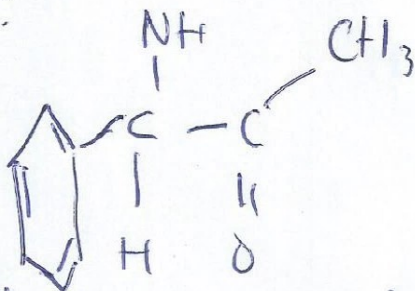 NH CH3
C - C
H O